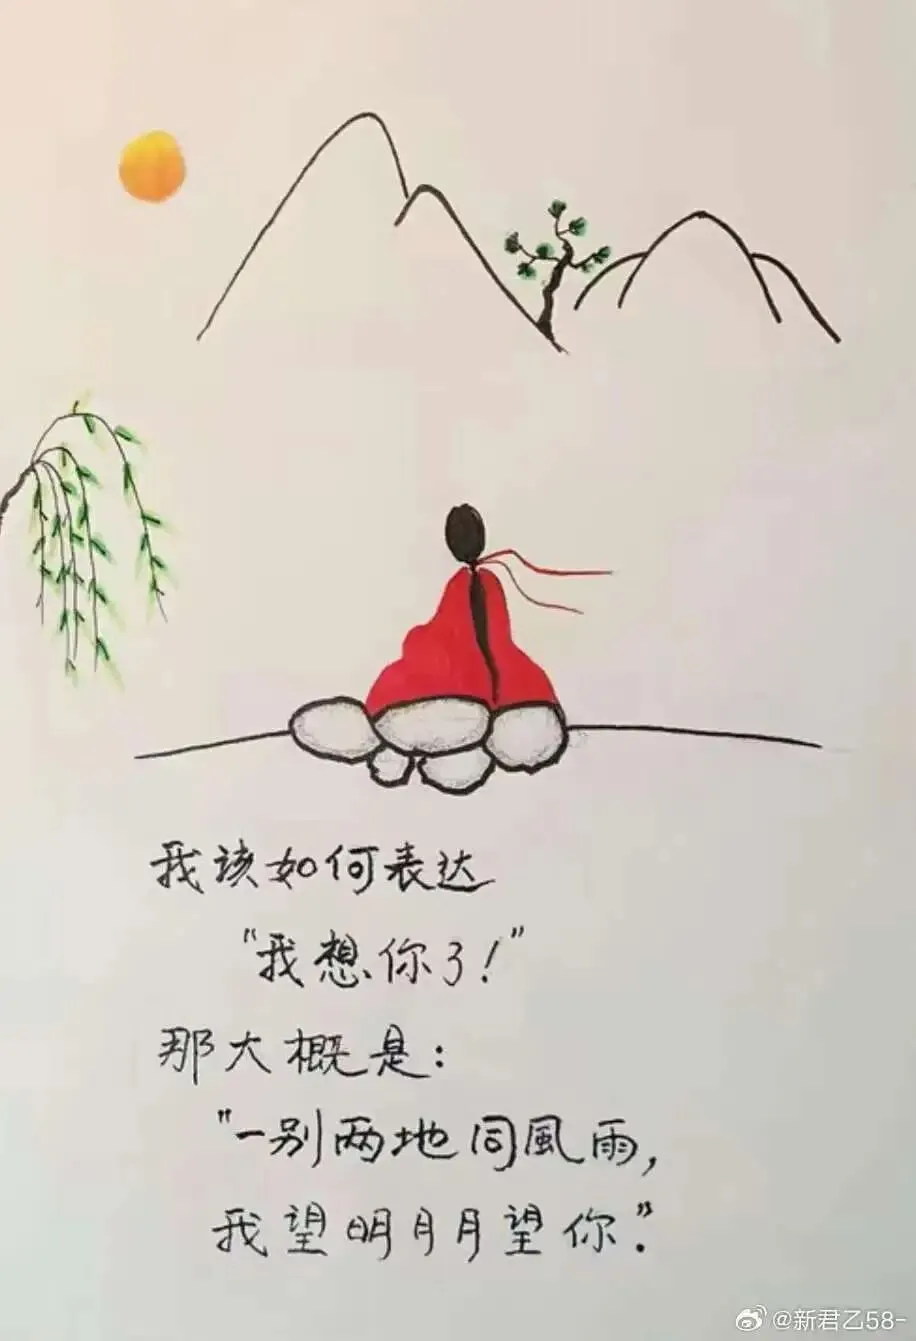 我该如何表达
"我想你了！"
那大概是：
"一别两地同風雨，
我望明月月望你。"
@新君乙58-